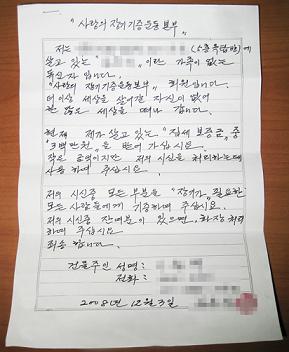 "사랑의 장기기증운동본부"
저는 (5층옥탑방)에
살고 있는 " " 이란 가족이 없는
독신자 입니다.
"사랑의 장기기증운동본부" 회원입니다.
더 이상 세상을 살아갈 자신이 없어
한 많은 세상을 떠나 갑니다.
현재 제가 살고 있는 "전세 보증금" 중
"3백만원"을 받어 가십시요.
작은 금액이지만 저의 시신을 처리하는데
사용 하며 주십시요.
저의 시신중 모든 부분을 "장기가" 필요한
모든 사람들에게 기증하며 주십시요.
저의 시신중 잔여분이 있으면, 화장 처리
하며 주십시요
죄송합니다.
건물주인 성명:
전화:
2008년 12월 3일